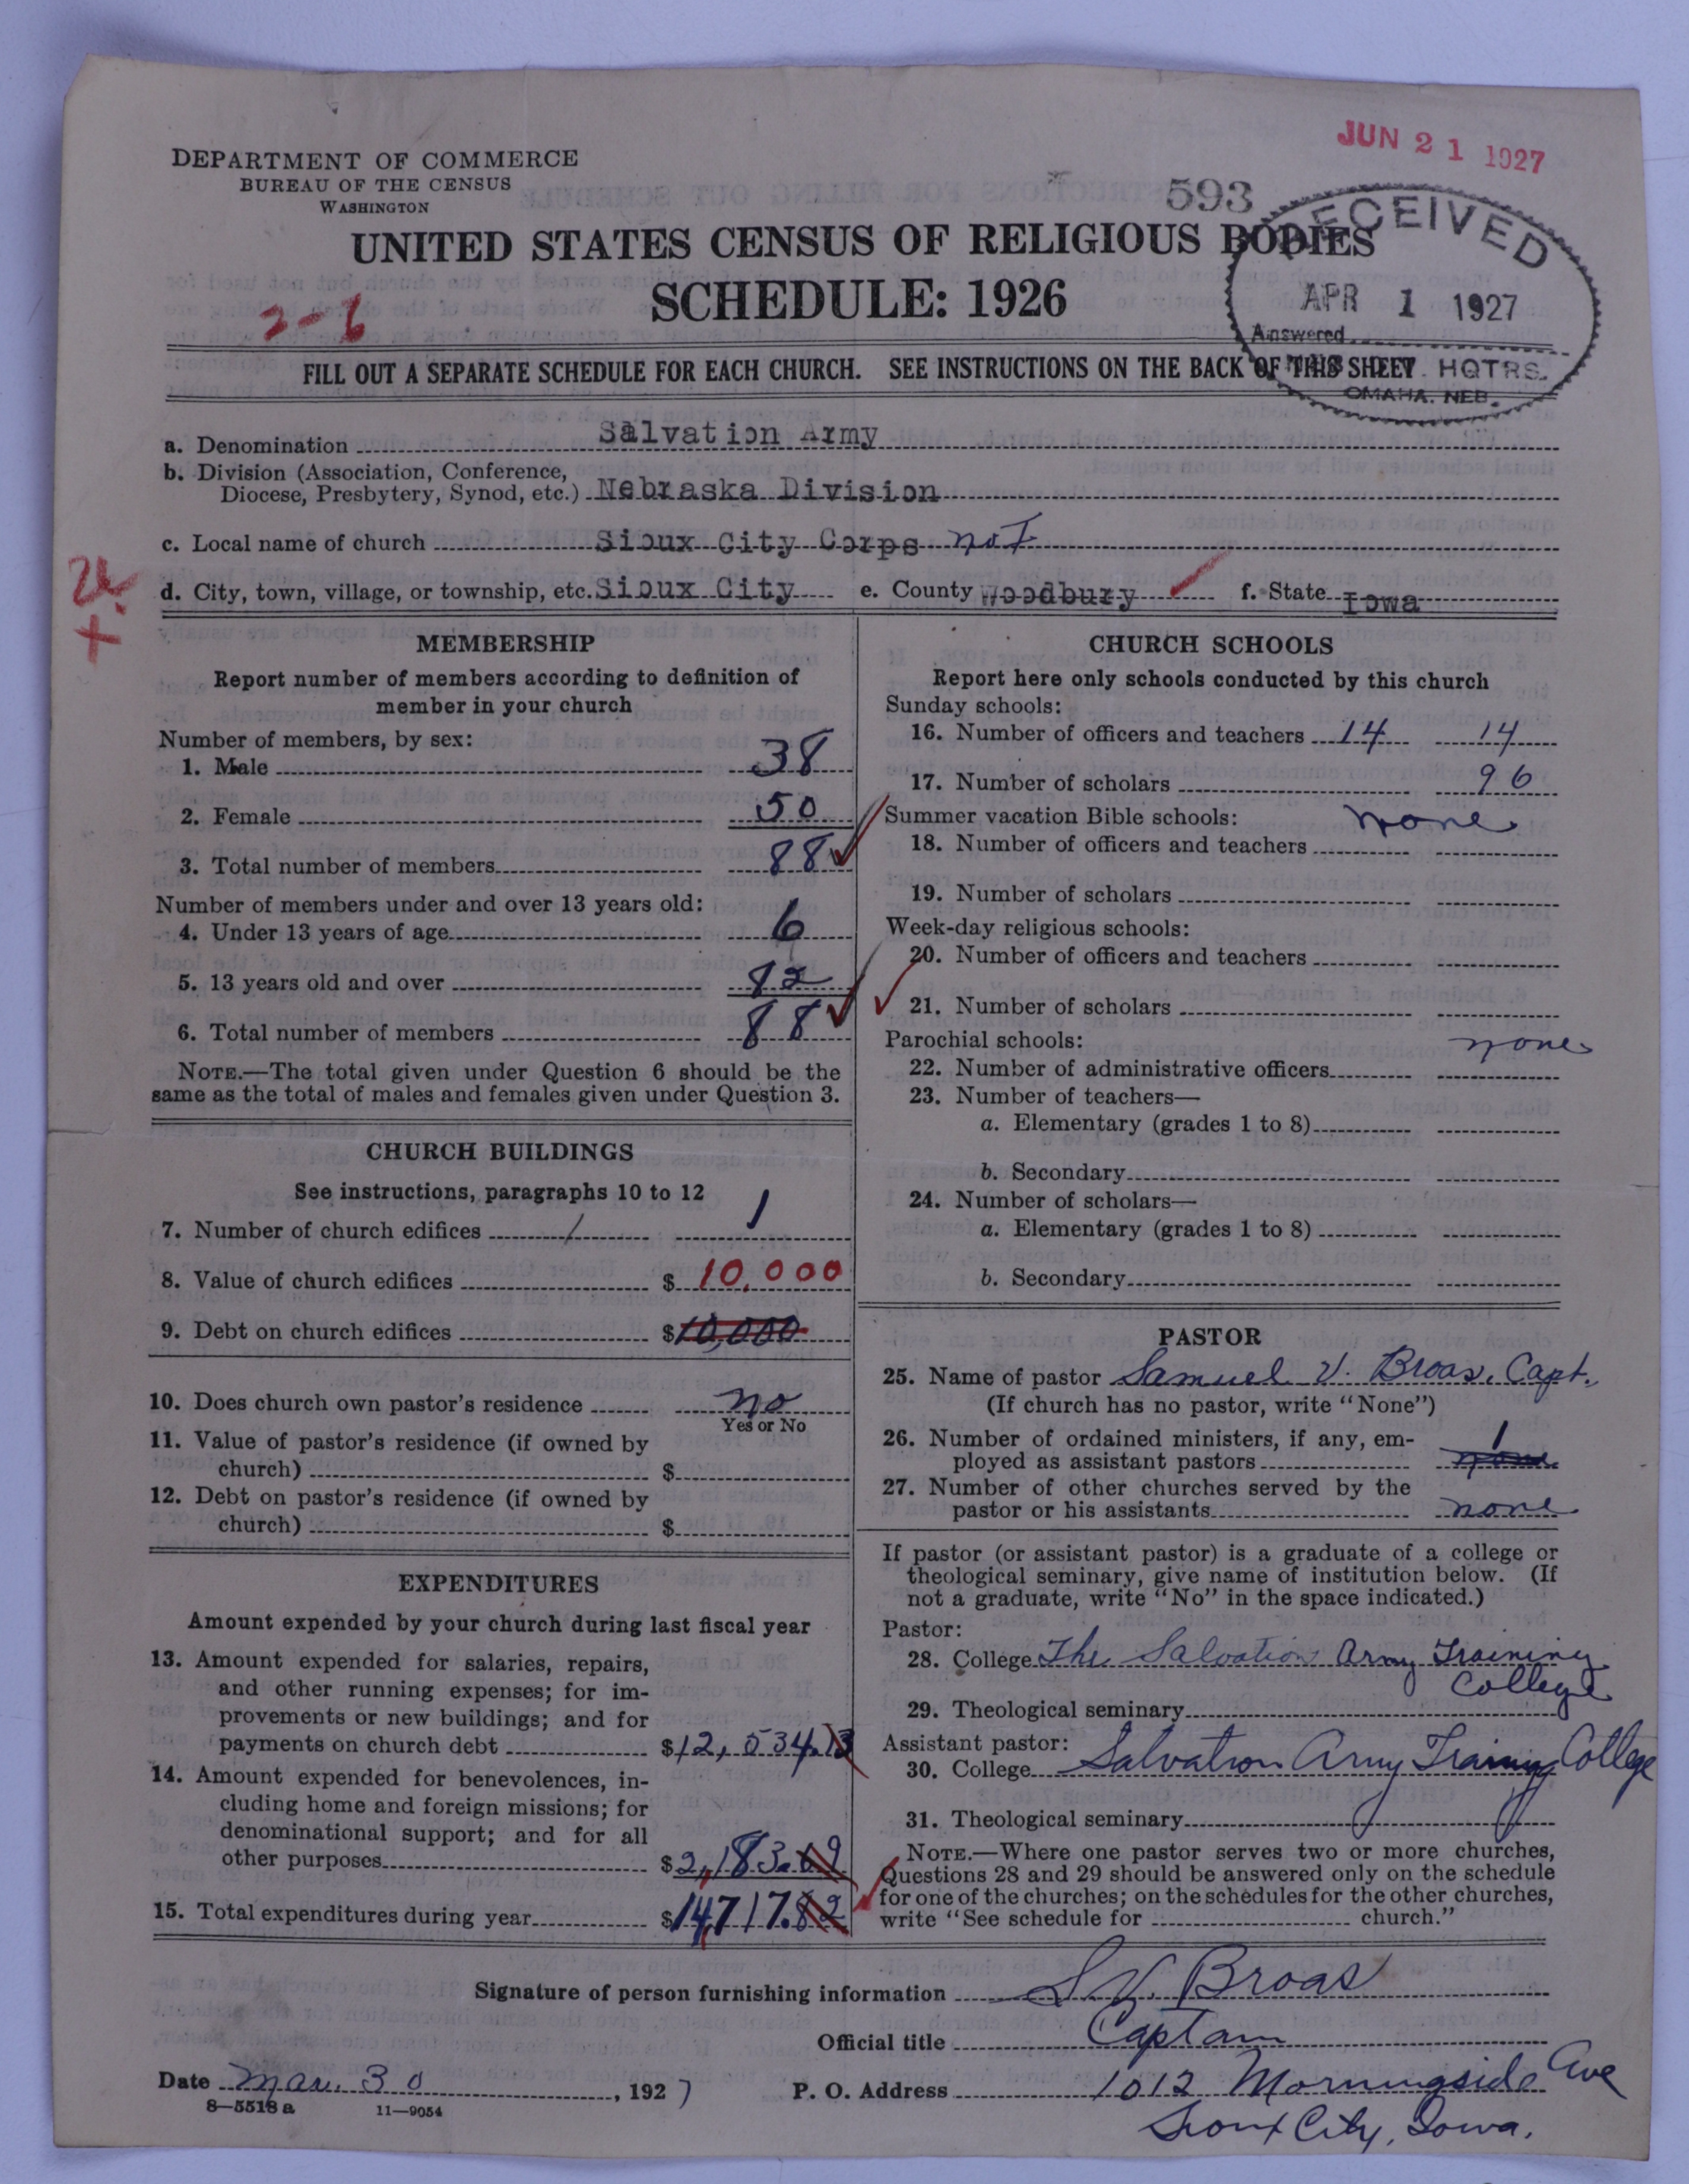 JUN 21 1927
DEPARTMENT OF COMMERCE
BUREAU OF THE CENSUS
WASHINGTON
593
RECEIVED
APR 1 1927
Answered
HQTRS.
OMAHA. NEB.
UNITED STATES CENSUS OF RELIGIOUS BODIES
SCHEDULE: 1926
2-6
FILL OUT A SEPARATE SCHEDULE FOR EACH CHURCH. SEE INSTRUCTIONS ON THE BACK OF THIS SHEET
a. Denomination Salvation Army
b. Division (Association, Conference,
Diocese, Presbytery, Synod, etc.) Nebraska Division
c. Local name of church Sioux City Corps no I
d. City, town, village, or township, etc. Sioux City e. County Woodbury f. State Iowa
MEMBERSHIP
Report number of members according to definition of
member in your church
Number of members, by sex:
1. Male 38
2. Female 50
3. Total number of members 88
Number of members under and over 13 years old:
4. Under 13 years of age 6
5. 13 years old and over 82
6. Total number of members 88
NOTE.—The total given under Question 6 should be the
same as the total of males and females given under Question 3.
CHURCH BUILDINGS
See instructions, paragraphs 10 to 12
7. Number of church edifices 1 1
8. Value of church edifices $ 10,000
9. Debt on church edifices $ 10,000
10. Does church own pastor's residence no
Yes or No
11. Value of pastor's residence (if owned by
church) $
12. Debt on pastor's residence (if owned by
church) $
EXPENDITURES
Amount expended by your church during last fiscal year
13. Amount expended for salaries, repairs,
and other running expenses; for im-
provements or new buildings; and for
payments on church debt $12,534.13
14. Amount expended for benevolences, in-
cluding home and foreign missions; for
denominational support; and for all
other purposes $2,183.69
15. Total expenditures during year $14,717.82
CHURCH SCHOOLS
Report here only schools conducted by this church
Sunday schools:
16. Number of officers and teachers 14 14
17. Number of scholars 96
Summer vacation Bible schools: none
18. Number of officers and teachers
19. Number of scholars
Week-day religious schools:
20. Number of officers and teachers
21. Number of scholars
Parochial schools: none
22. Number of administrative officers
23. Number of teachers—
a. Elementary (grades 1 to 8)
b. Secondary
24. Number of scholars—
a. Elementary (grades 1 to 8)
b. Secondary
PASTOR
25. Name of pastor Samuel V. Broas, Capt.
(If church has no pastor, write "None")
26. Number of ordained ministers, if any, em- 1
ployed as assistant pastors none
27. Number of other churches served by the
pastor or his assistants none
If pastor (or assistant pastor) is a graduate of a college or
theological seminary, give name of institution below. (If
not a graduate, write "No" in the space indicated.)
Pastor:
28. College The Salvation Army Training
College
29. Theological seminary
Assistant pastor:
30. College Salvation Army Training College
31. Theological seminary
NOTE.—Where one pastor serves two or more churches,
Questions 28 and 29 should be answered only on the schedule
for one of the churches; on the schedules for the other churches,
write "See schedule for church."
Signature of person furnishing information S.V. Broas
Official title Captain
Date Mar. 30, 1927 P. O. Address 1012 Morningside Ave
8—5518 a 11—9054
Sioux City, Iowa.